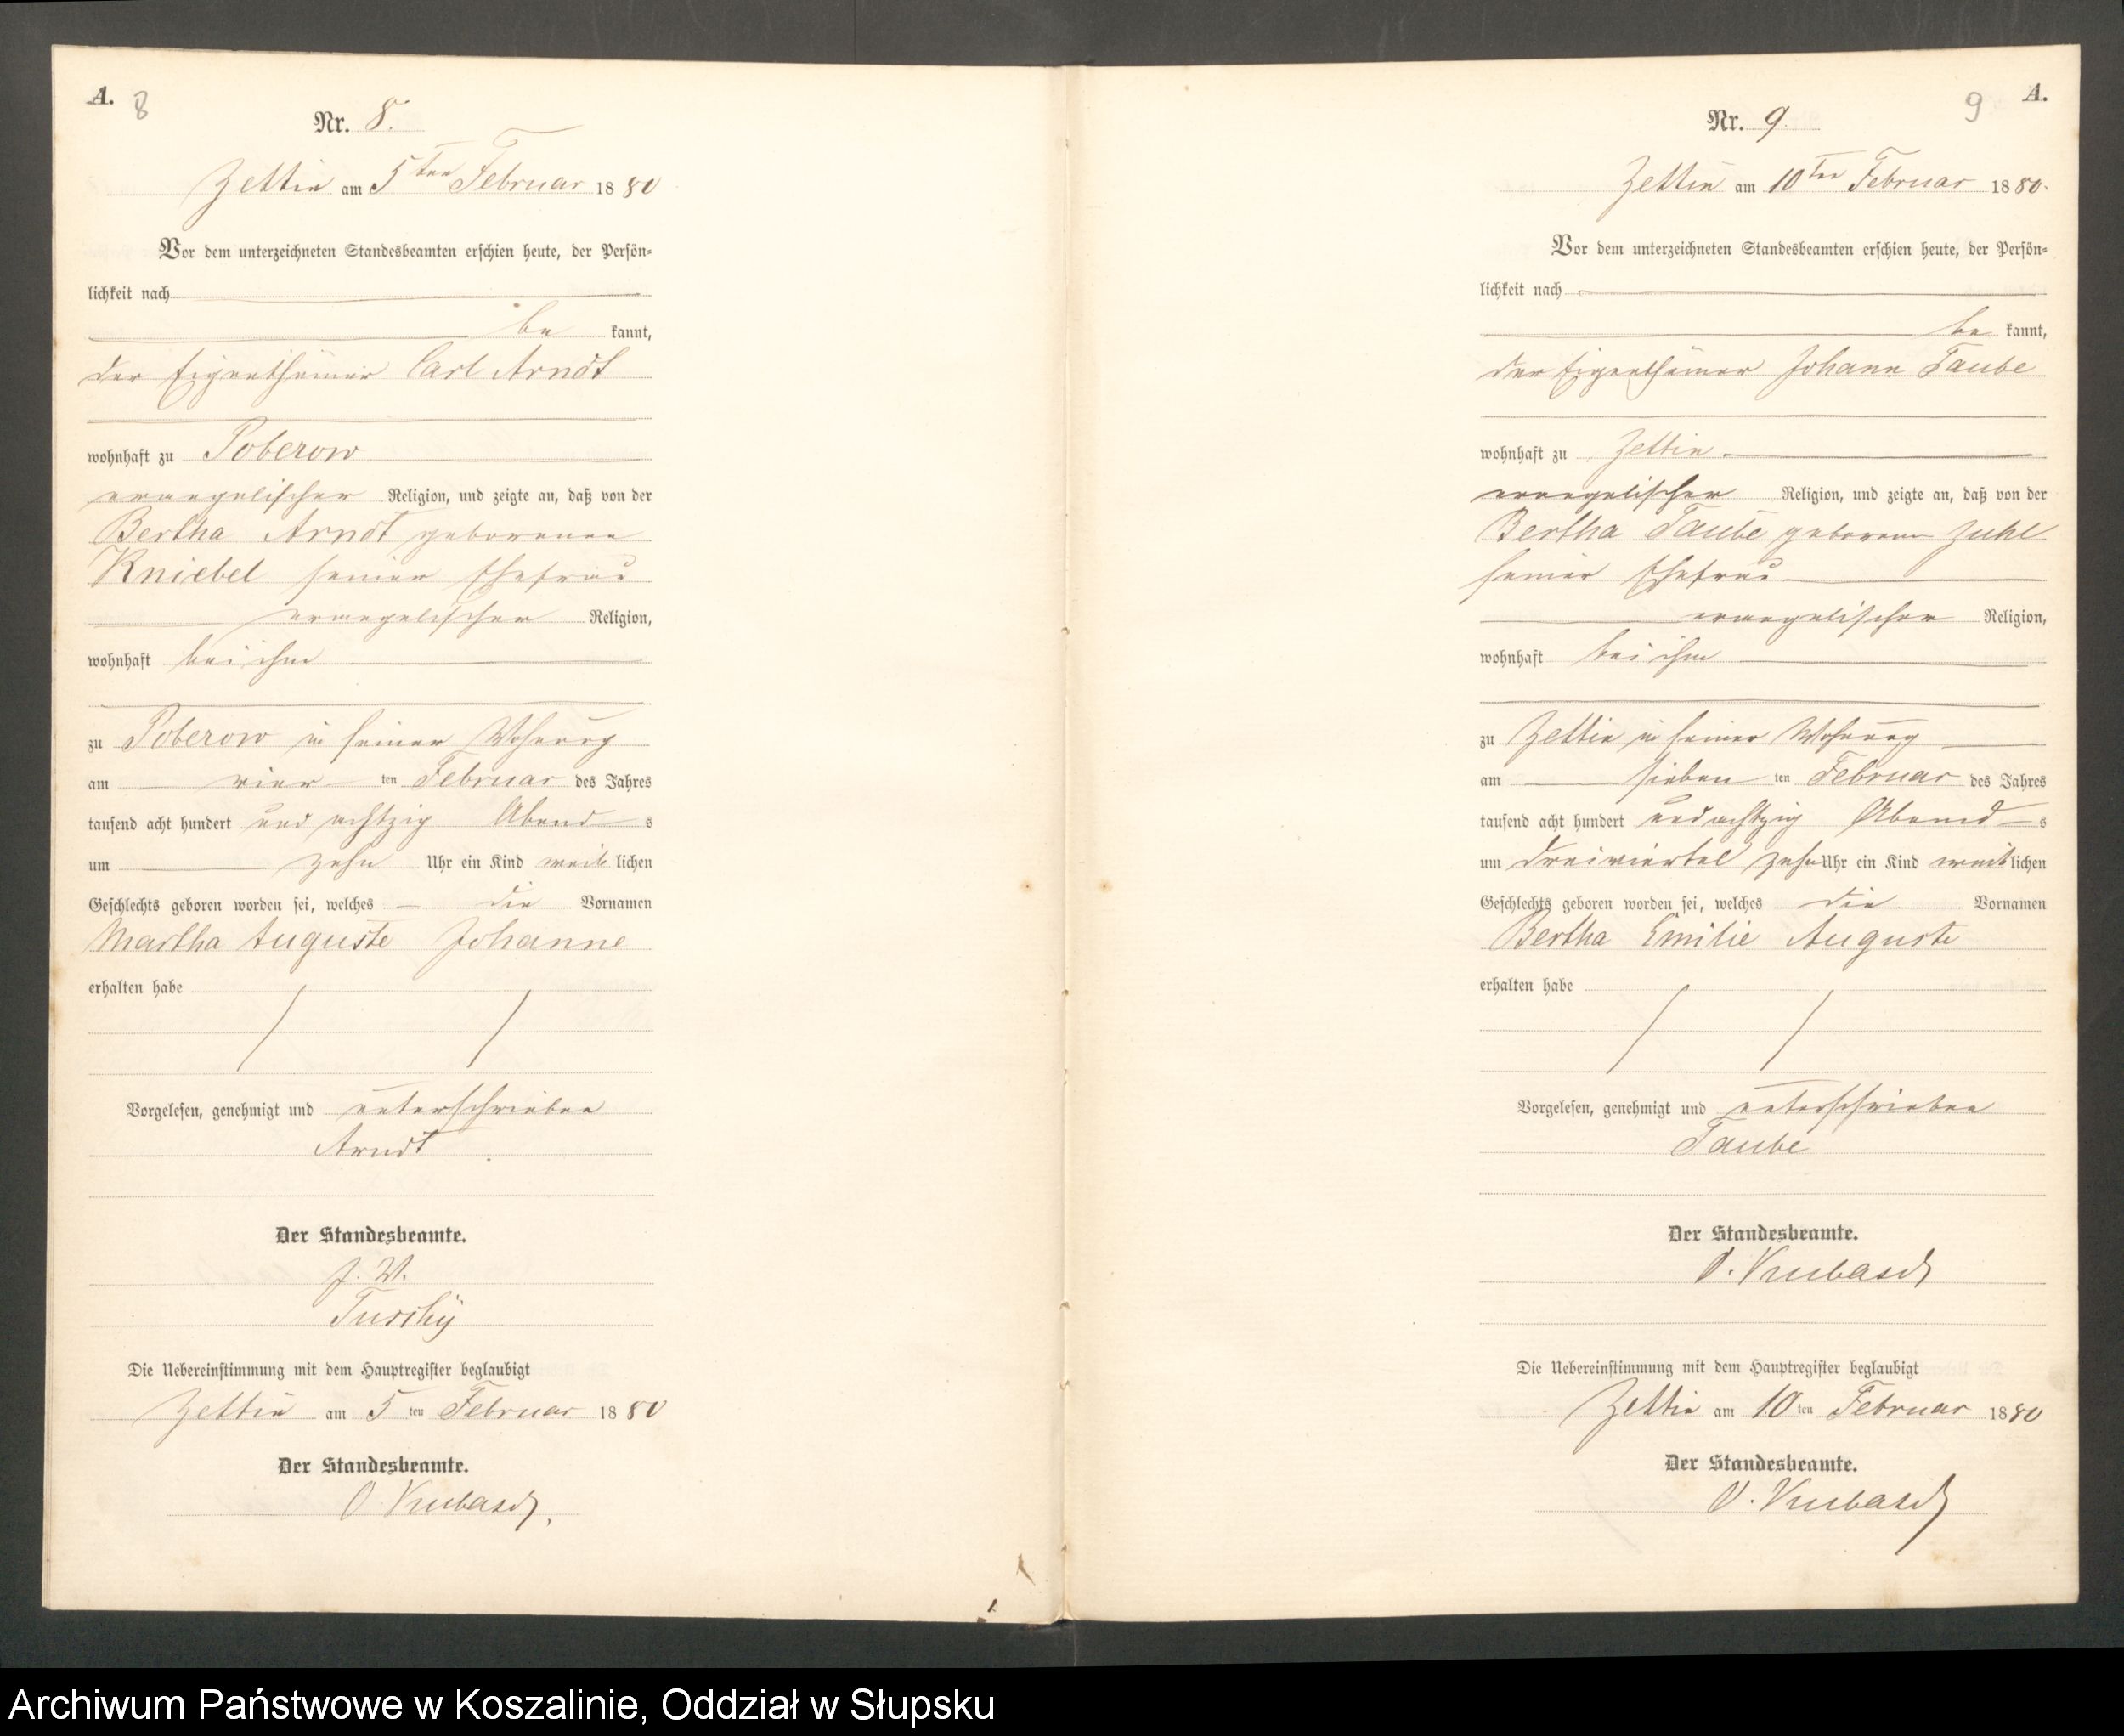 A. 8
Nr. 8.
Zettin am 5ten Februar 1880
Vor dem unterzeichneten Standesbeamten erschien heute, der Persön-
lichkeit nach
be kannt,
der Eigenthümer Carl Arndt
wohnhaft zu Poberow
evangelischer Religion, und zeigte an, daß von der
Bertha Arndt geborenen
Kniebel seiner Ehefrau
evangelischer Religion,
wohnhaft bei ihm
zu Poberow in seiner Wohnung
am vier ten Februar des Jahres
tausend acht hundert und achtzig Abend s
um zehn Uhr ein Kind weib lichen
Geschlechts geboren worden sei, welches die Vornamen
Martha Auguste Johanne
erhalten habe
Vorgelesen, genehmigt und unterschrieben
Arndt
Der Standesbeamte.
J. V.
Die Uebereinstimmung mit dem Hauptregister beglaubigt
Zettin am 5 ten Februar 1880
Der Standesbeamte.
O. Krubasch.
9 A.
Nr. 9.
Zettin am 10ten Februar 1880.
Vor dem unterzeichneten Standesbeamten erschien heute, der Persön-
lichkeit nach
be kannt,
der Eigenthümer Johann Taube
wohnhaft zu Zettin
evangelischer Religion, und zeigte an, daß von der
Bertha Taube geborene Zuhl
seiner Ehefrau
evangelischer Religion,
wohnhaft bei ihm
zu Zettin in seiner Wohnung
am sieben ten Februar des Jahres
tausend acht hundert und achtzig Abend s
um dreiviertel zehn Uhr ein Kind weib lichen
Geschlechts geboren worden sei, welches die Vornamen
Bertha Emilie Auguste
erhalten habe
Vorgelesen, genehmigt und unterschrieben
Taube
Der Standesbeamte.
O. Krubasch
Die Uebereinstimmung mit dem Hauptregister beglaubigt
Zettin am 10 ten Februar 1880
Der Standesbeamte.
O. Krubasch
Archiwum Państwowe w Koszalinie, Oddział w Słupsku